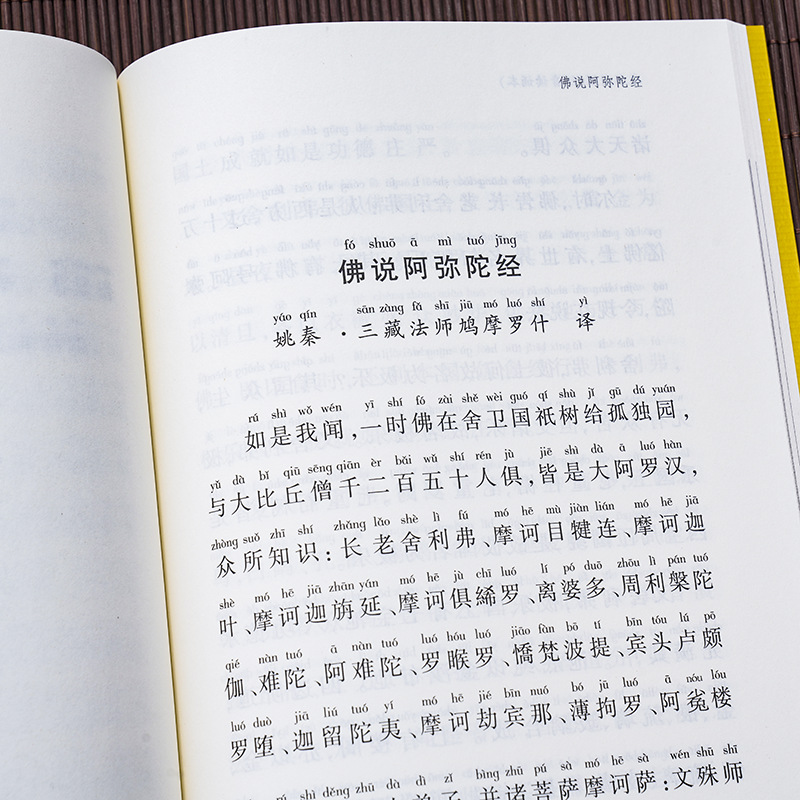 佛说阿弥陀经
fó shuō ā mì tuó jīng
佛说阿弥陀经
yáo qín sān zàng fǎ shī jiū mó luó shí yì
姚秦·三藏法师鸠摩罗什 译
rú shì wǒ wén yī shí fó zài shě wèi guó qí shù jǐ gū dú yuán
如是我闻,一时佛在舍卫国祇树给孤独园,
yǔ dà bǐ qiū sēng qiān èr bǎi wǔ shí rén jù jiē shì dà ā luó hàn
与大比丘僧千二百五十人俱,皆是大阿罗汉,
zhòng suǒ zhī shí zhǎng lǎo shè lì fú mó hē mù jiàn lián mó hē jiā
众所知识:长老舍利弗、摩诃目犍连、摩诃迦
shè mó hē jiā zhān yán mó hē jù chī luó lí pó duō zhōu lì pán tuó
叶、摩诃迦旃延、摩诃俱絺罗、离婆多、周利槃陀
qié nàn tuó ā nàn tuó luó hóu luó jiāo fàn bō tí bīn tóu lú pō
伽、难陀、阿难陀、罗睺罗、憍梵波提、宾头卢颇
luó duò jiā liú tuó yí mó hē jié bīn nuó bó jū luó ā nóu lóu
罗堕、迦留陀夷、摩诃劫宾那、薄拘罗、阿㝹楼
shì děng zhū dà dì zǐ bìng zhū pú sà mó hē sà wén shū shī
弟子,并诸菩萨摩诃萨:文殊师